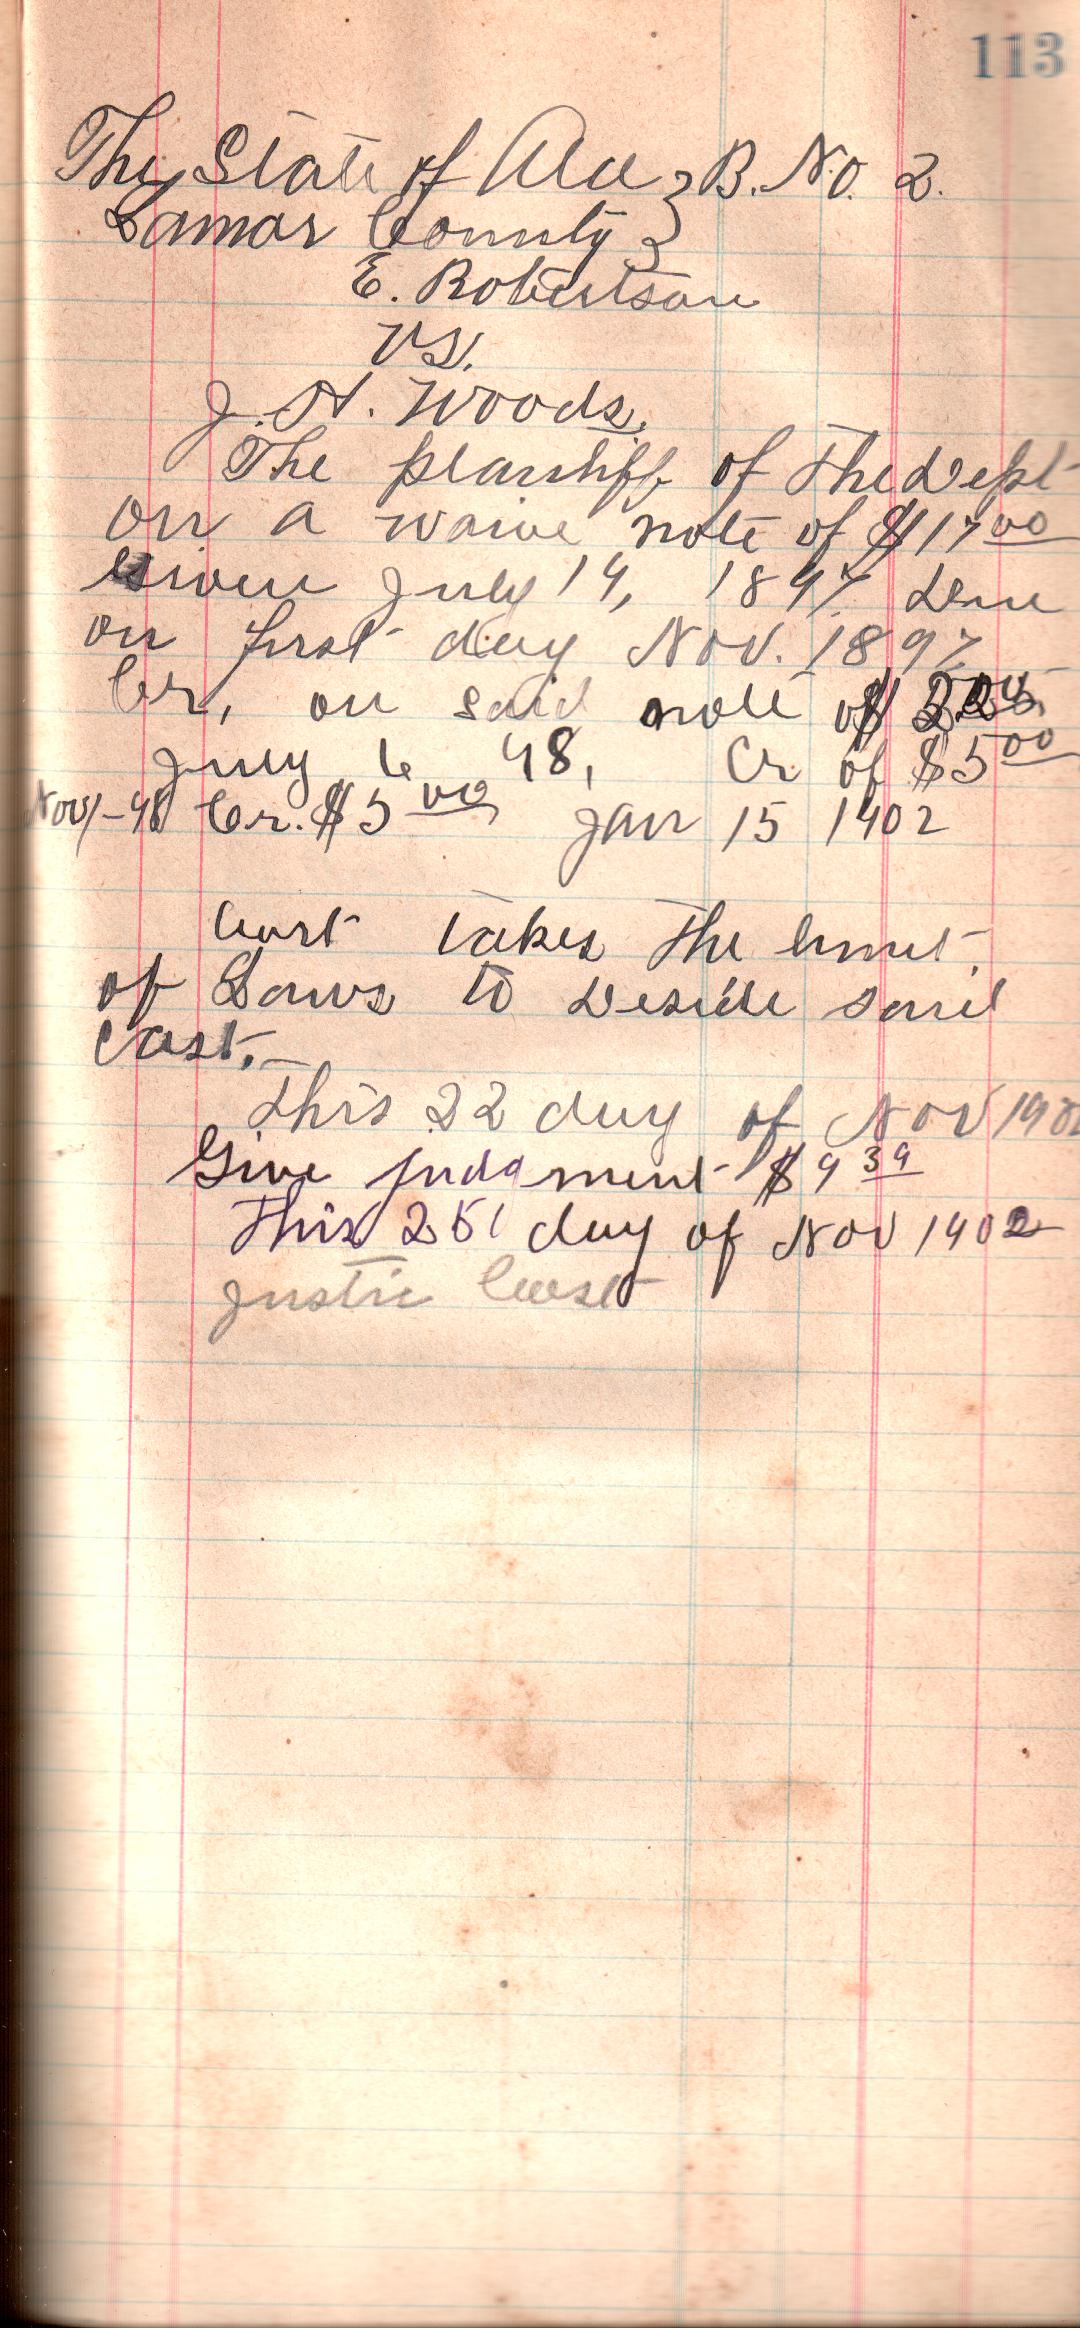 113
The State of Ala } B. No. 2.
Lamar County }
E. Robertson
vs.
J. H. Woods.
The plantiff of The Deft
on a waive note of $17 00
Given July 14, 1897 Due
on first day Nov. 1897
Cr, on said note of $
July 6 98, Cr of $5 00
Nov 1-98 Cr. $5 00 Jan 15 1902
Cort takes The
of Laws to Deside said
Case.
This 22 day of Nov 1902
Give judgment $9 39
This 25 day of Nov 1902
Justic Cost